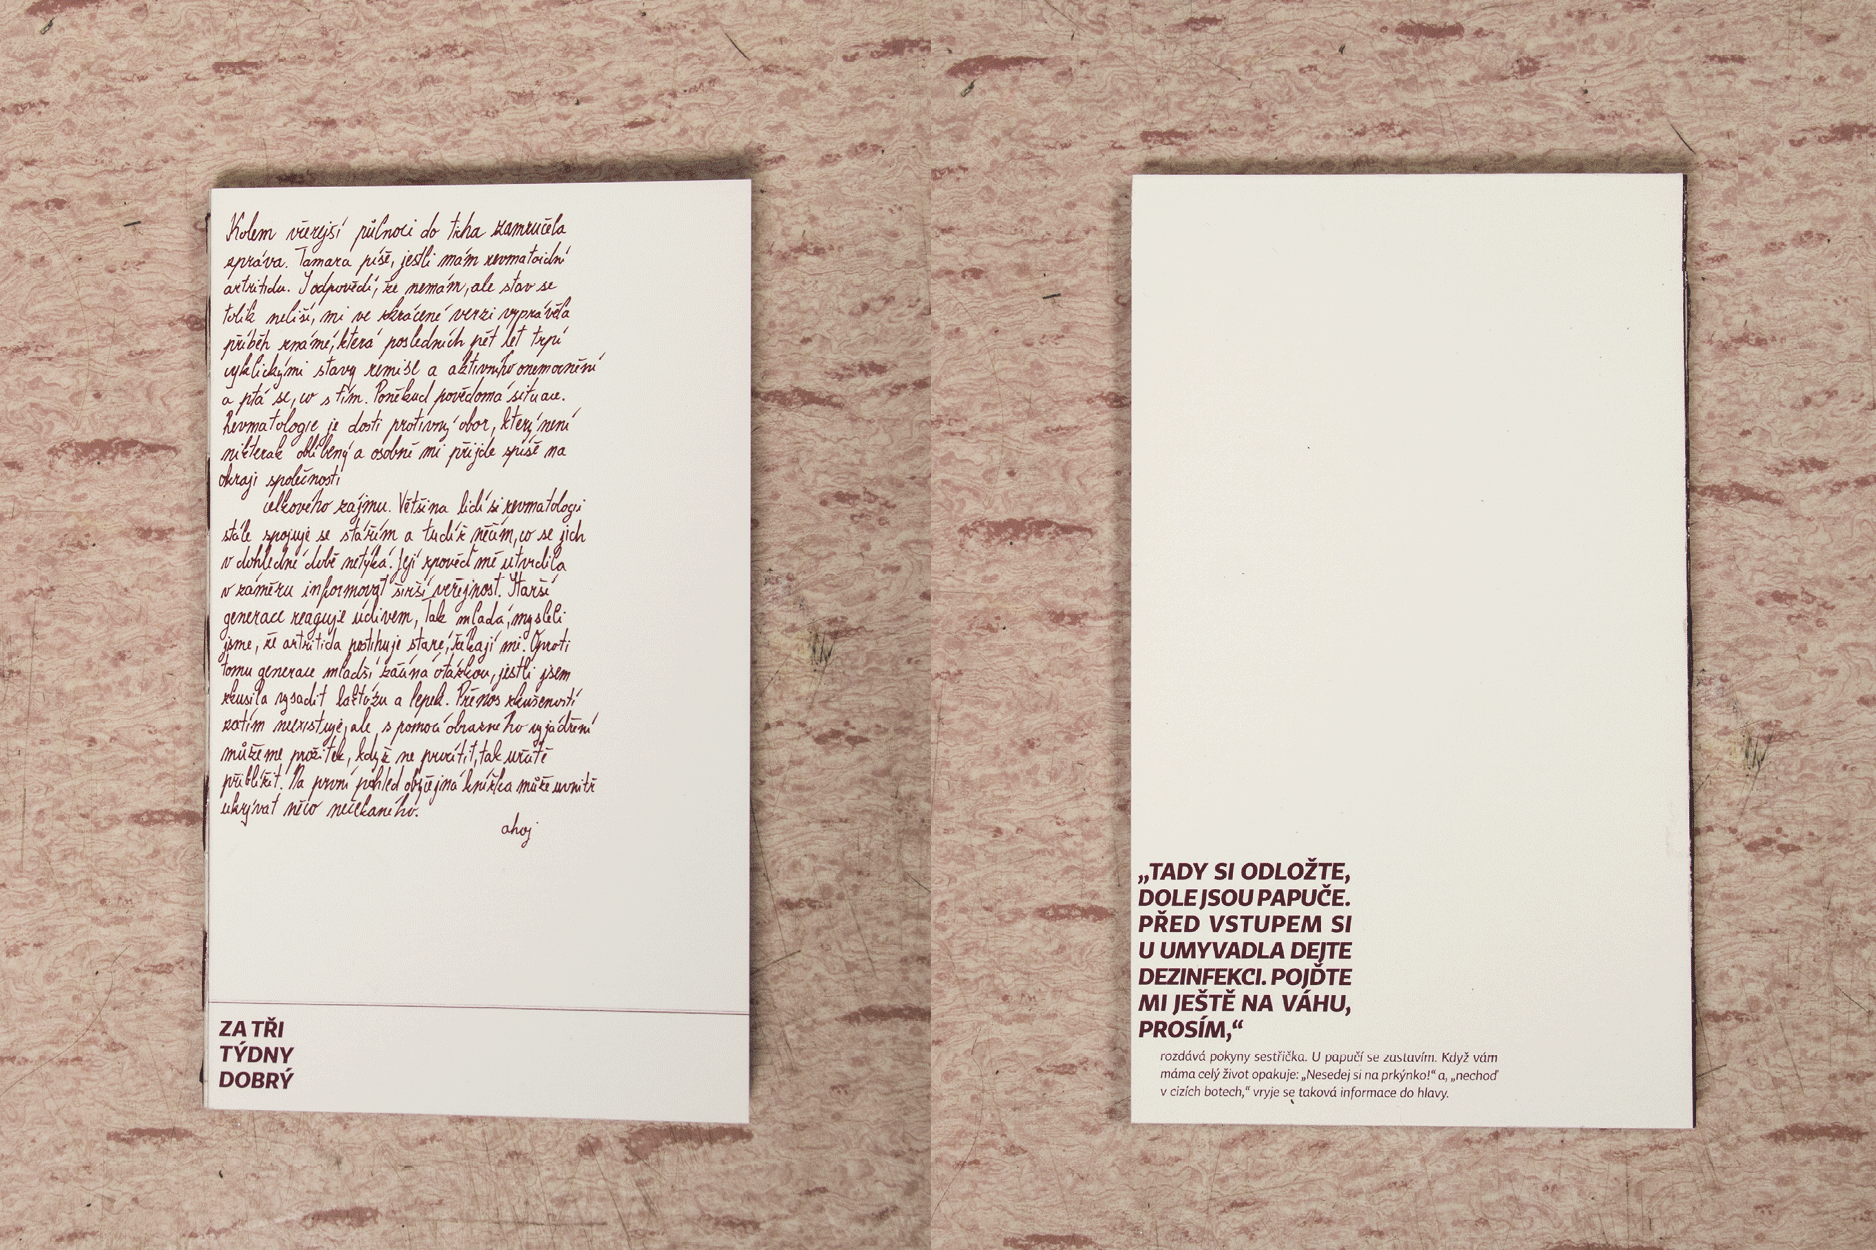 Kolem včerejší půlnoci do ticha zamručela
zpráva. Tamara píše, jestli mám revmatoidní
artritidu. S odpovědí, že nemám, ale stav se
tolik neliší, mi ve zkrácené verzi vyprávěla
příběh známé, která posledních pět let trpí
cyklickými stavy remise a aktivního onemocnění
a ptá se, co s tím. Poněkud povědomá situace.
Revmatologie je dosti protivný obor, který není
nikterak oblíbený a osobně mi přijde spíše na
okraji společnosti
celkového zájmu. Většina lidí si revmatologi
stále spojuje se stářím a tudíž něčím, co se jich
v dohledné době netýká. Její zpověď mě utvrdila
v záměru informovat širší veřejnost. Starší
generace reaguje údivem, Tak mladá, mysleli
jsme, že artritida postihuje staré, říkají mi. Oproti
tomu generace mladší začíná otázkou, jestli jsem
zkusila vysadit laktózu a lepek. Přenos zkušeností
zatím neexistuje, ale s pomocí obrazného vyjádření
můžeme prožitek, když ne pocítit, tak určitě
přiblížit. Na první pohled obyčejná knížka může uvnitř
ukrývat něco nečekaného.
ahoj
ZA TŘI
TÝDNY
DOBRÝ
„TADY SI ODLOŽTE,
DOLE JSOU PAPUČE.
PŘED VSTUPEM SI
U UMYVADLA DEJTE
DEZINFEKCI. POJĎTE
MI JEŠTĚ NA VÁHU,
PROSÍM,“
rozdává pokyny sestřička. U papučí se zastavím. Když vám
máma celý život opakuje: „Nesedej si na prkýnko!“ a, „nechoď
v cizích botech,“ vryje se taková informace do hlavy.